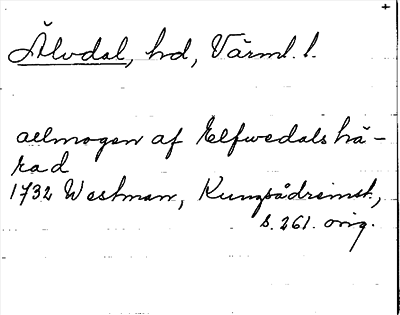 Älvdal, hd, Värml. l.
allmogen af Elfwedals hä-
rad
1732 Westman, Kungsådreinst.,
s. 261. orig.